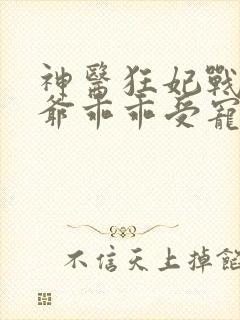 神醫狂妃戰
爺乖乖受寵
不信天上掉餡